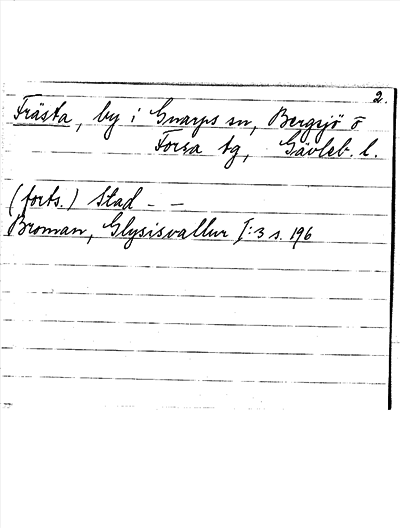 2.
Frästa, by i Gnarps sn, Bergsjö o
Forsa tg, Gävleb. l.
(forts.) Stad - -
Broman, Glysisvallur I:3 s. 196